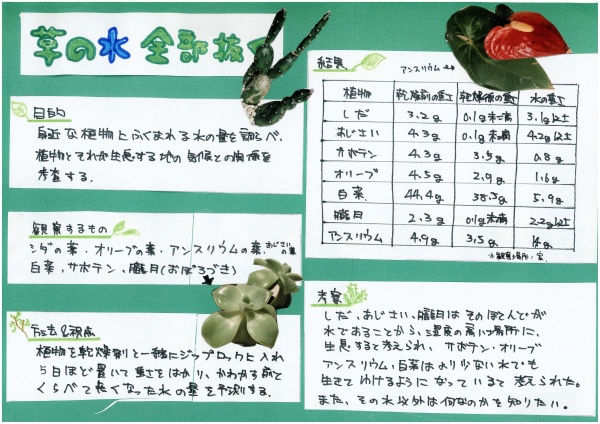 草の水 全部抜く
目的
身近な植物にふくまれる水の量を調べ、
植物とそれが生息する地の気候との関係を
考査する。
観察するもの
シダの葉・オリーブの葉・アンスリウムの葉・あじさいの葉
白菜、サボテン、朧月(おぼろづき)
方法&視点
植物を乾燥剤と一緒にジップロックに入れ
5日ほど置いて重さをはかり、かわかす前と
くらべて軽くなった水の量を予測する。
結果
アンスリウム→
植物 乾燥前の重さ 乾燥後の重さ 水の重さ
しだ 3.2g 0.1g未満 3.1g以上
あじさい 4.3g 0.1g未満 4.2g以上
サボテン 4.3g 3.5g 0.8g
オリーブ 4.5g 2.9g 1.6g
白菜 44.4g 38.5g 5.9g
朧月 2.3g 0.1g未満 2.2g以上
アンスリウム 4.9g 3.5g
※観察場所:室
考察
しだ、あじさい、朧月はそのほとんどが
水であることから、湿度の高い場所に、
生息すると考えられ、サボテン・オリーブ
アンスリウム、白菜はより少ない水でも
生きてゆけるようになっていると考えられた。
また、その水以外は何なのかを知りたい。